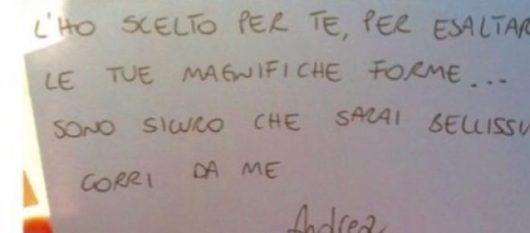 L'HO SCELTO PER TE, PER ESALTAR
LE TUE MAGNIFICHE FORME...
SONO SICURO CHE SARAI BELLISSI
CORRI DA ME
Andrea